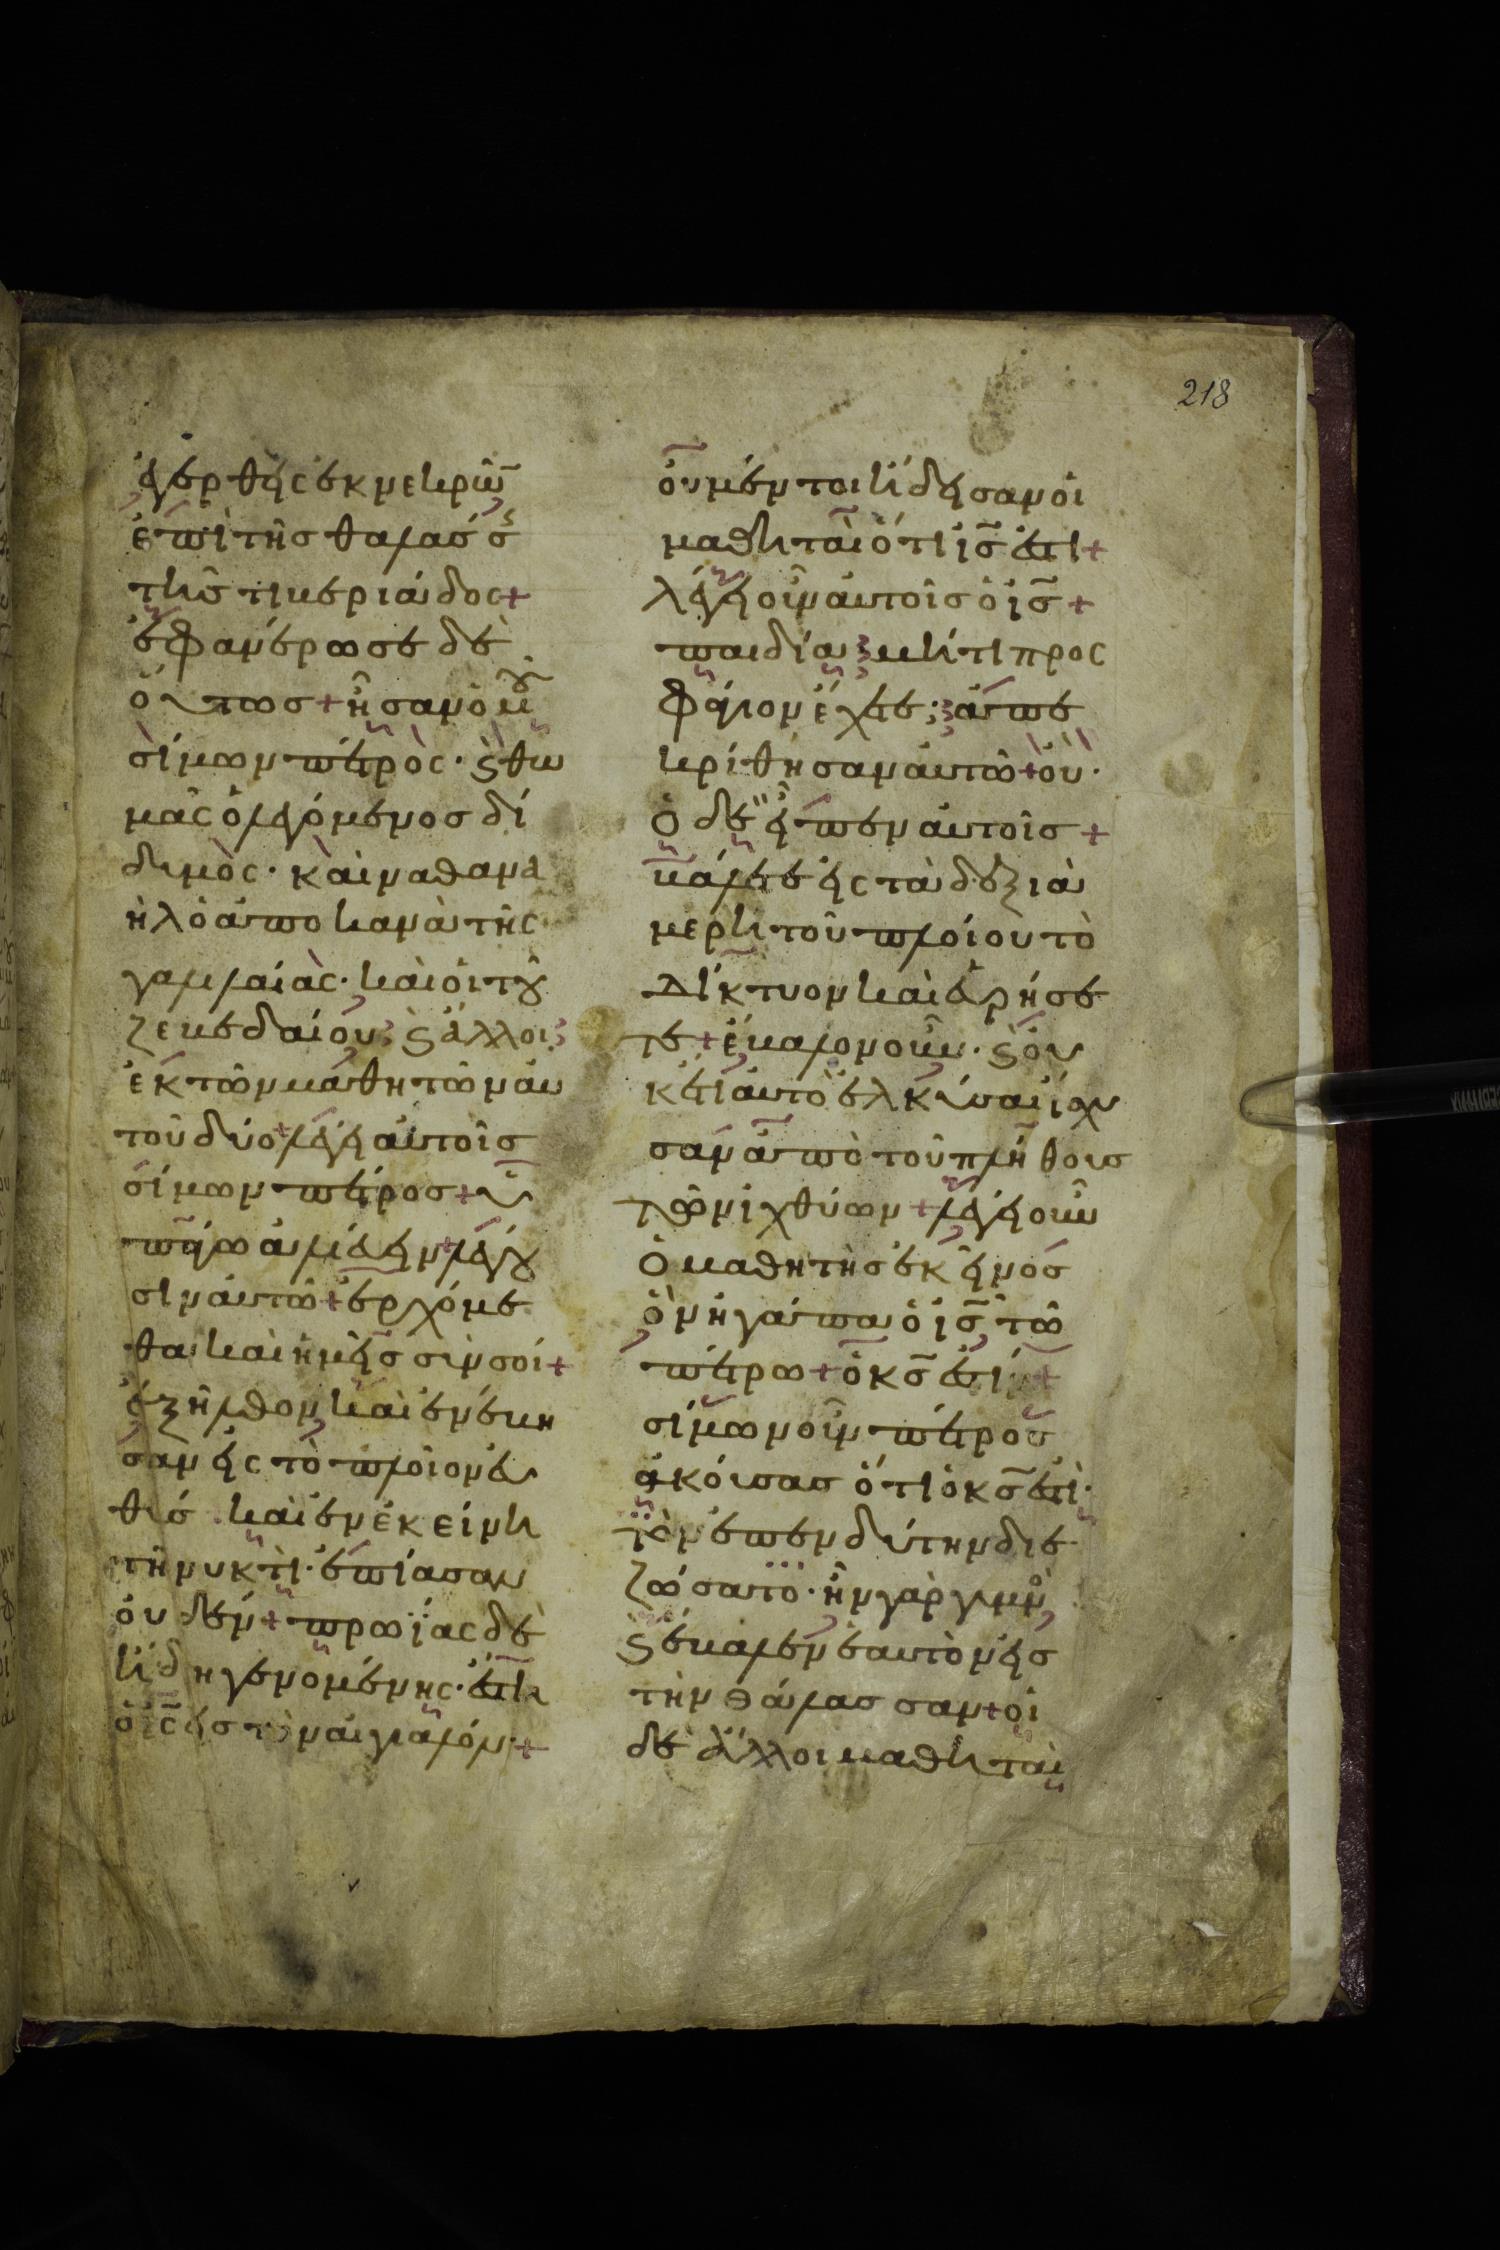 218
ἐγερθεὶς ἐκ νεκρῶν
ἐπὶ τῆς θαλάσσης
τῆς τιβεριάδος+
ἐφανέρωσε δὲ
οὕτως+ ἦσαν ὁμοῦ
σίμων πέτρος· ϗ θω
μᾶς ὁ λεγόμενος δί
δυμος· καὶ ναθανα
ὴλ ὁ ἀπὸ κανὰ τῆς
γαλιλαίας· καὶ οἱ τοῦ
ζεβεδαίου ϗ ἄλλοι
ἐκ τῶν μαθητῶν αὐ
τοῦ δύο+ λέγει αὐτοῖς
σίμων πέτρος+ ὑ
πάγω ἁλιέειν+ λέγου
σιν αὐτῶ+ ἐρχόμε
θα καὶ ἡμεῖς σὺν σοί+
ἐξῆλθον καὶ ἐνέβη
σαν εἰς τὸ πλοῖον εὐ
θύς. καὶ ἐν ἐκείνη
τῆ νυκτὶ· ἐπίασαν
οὐδέν+ πρωΐας δὲ
ἤδη γενομένης· ἔστη
ὁ ις εἰς τὸν αἰγιαλόν·+
οὐ μέντοι ἤδεισαν οἱ
μαθηταὶ ὅτι ις ἐστι+
λέγει οὖν αὐτοῖς ὁ ις+
παιδία μή τι προς
φάγιον ἔχετε; ἀπε
κρίθησαν αὐτῶ+ οὔ·
ὁ δὲ εἶπεν αὐτοῖς+
βάλετε εἰς τὰ δεξιὰ
μέρη τοῦ πλοίου τὸ
δίκτυον καὶ εὑρήσε
τε+ ἔβαλον οὖν· ϗ οὐ
κέτι αὐτὸ ἑλκύσαι ἴσχυ
σαν ἀπὸ τοῦ πλήθους
τῶν ἰχθύων+ λέγει οὖν
ὁ μαθητὴς ἐκεῖνος
ὃν ἠγάπα ὁ ις τῶ
πέτρω+ ὁ κς ἐστίν+
σίμων οὖν πέτρος
ἀκούσας ὅτι ὁ κς ἐστὶ·
τὸν ἐπενδύτην διε
ζώσατο· ἦν γὰρ γυμνὸς
ϗ ἔβαλεν ἑαυτὸν εἰς
τὴν θάλασσαν+ οἱ
δὲ ἄλλοι μαθηταὶ